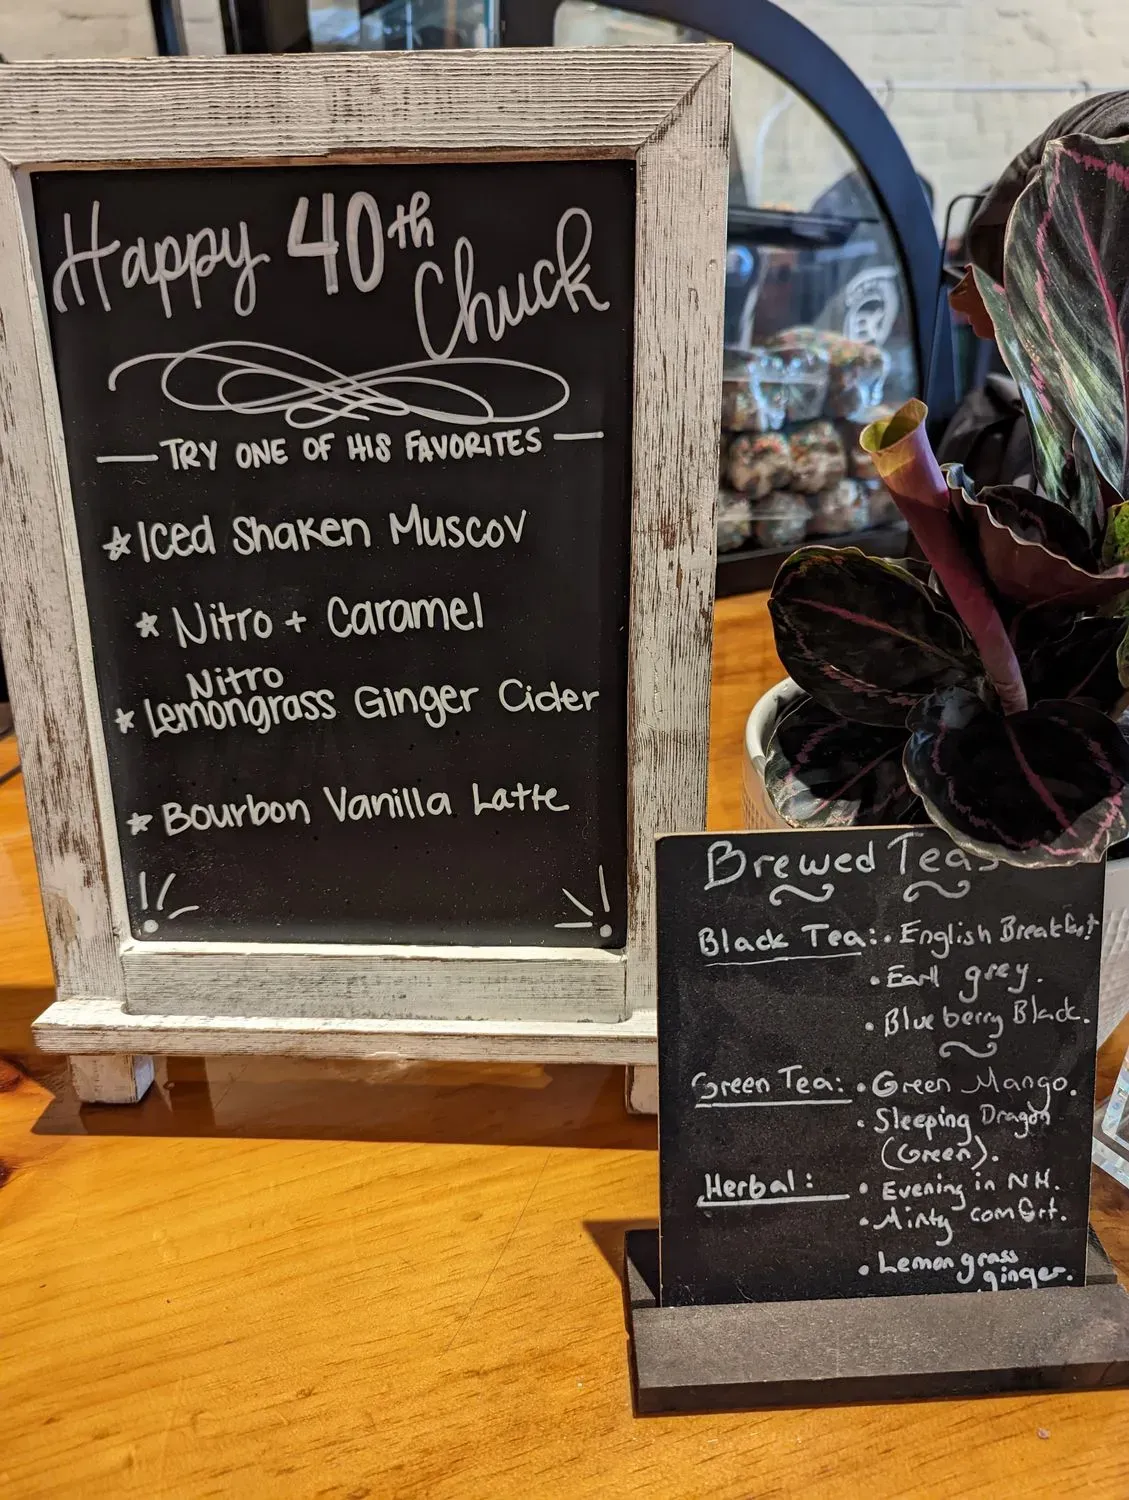 Happy 40th
Chuck
TRY ONE OF HIS FAVORITES
Iced Shaken Muscov
Nitro + Caramel
Nitro
Lemongrass Ginger Cider
Bourbon Vanilla Latte
Brewed Teas
Black Tea: • English Breakfast
• Earl grey.
• Blueberry Black.
Green Tea: • Green Mango.
• Sleeping Dragon
(Green).
Herbal: • Evening in NH.
• Minty comfort.
• Lemongrass
ginger.